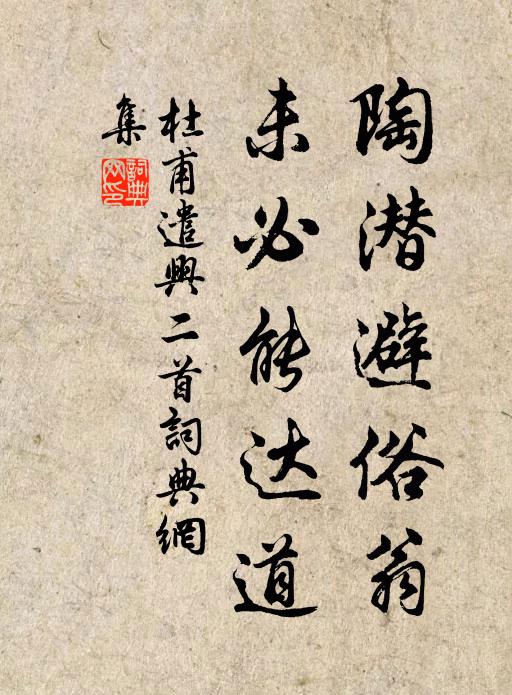 陶潜避俗翁
未必能达道
杜甫遣興二首詞典網
集
詞典
网印